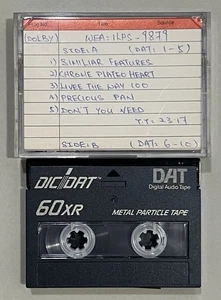 Time
Source
DOLBY
WEA: ILPS-9879
SIDE: A (DAT: 1-5)
1) SIMILIAR FEATURES
2) CHROME PLATED HEART
3) LIKE THE WAY I DO
4) PRECIOUS PAIN
5) DON'T YOU NEED
T.T: 23.17
SIDE: B (DAT: 6-10)
DIC///DAT
DAT
Digital Audio Tape
60XR
METAL PARTICLE TAPE